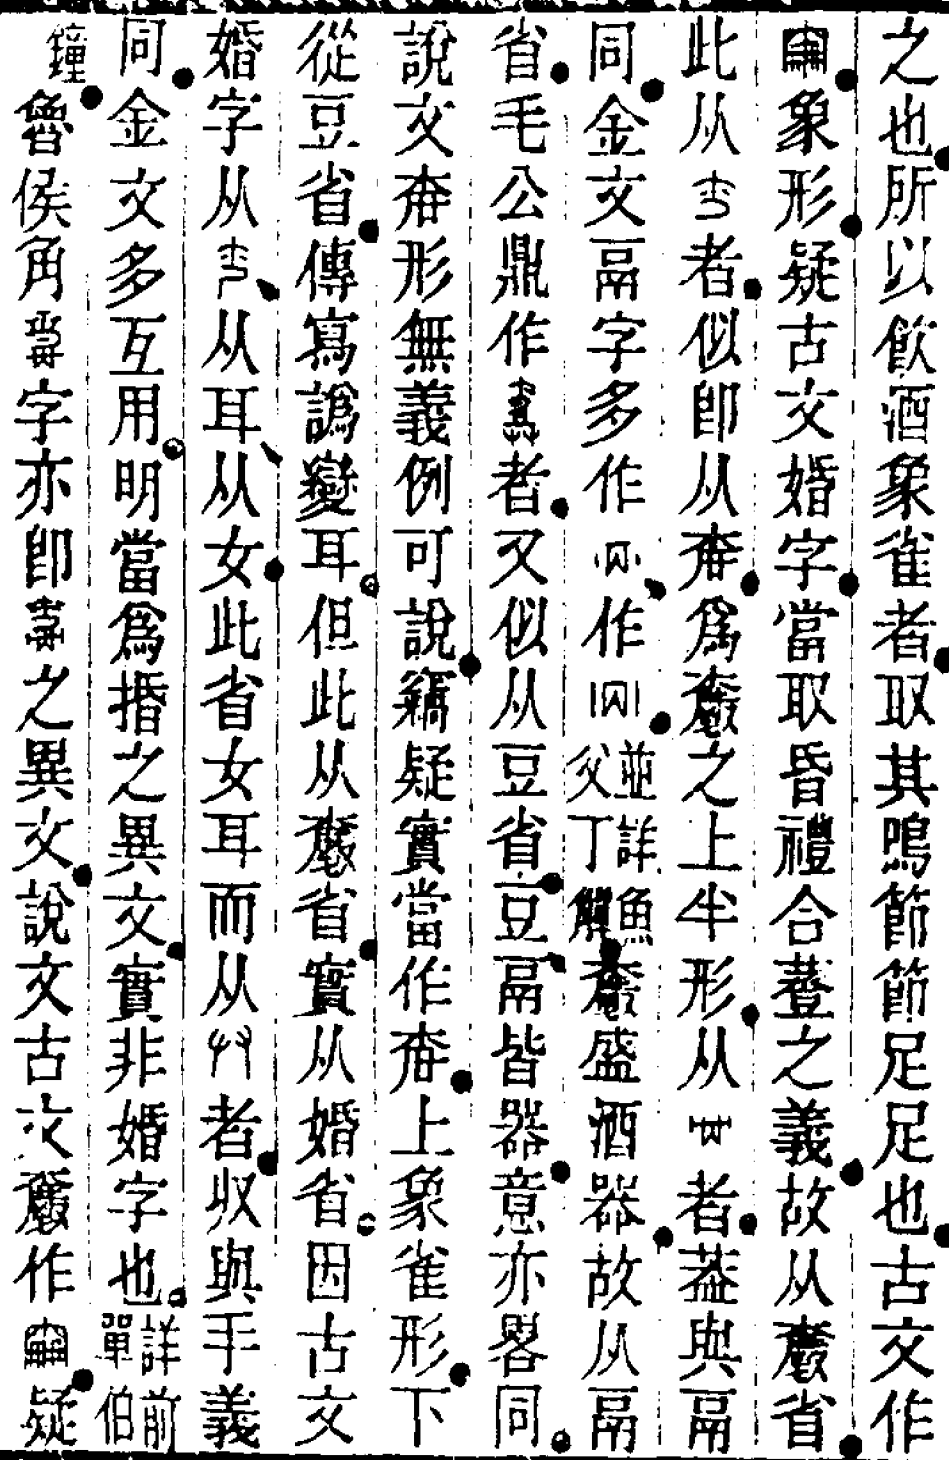 之也所以飲酒象雀者取其鳴節節足足也古文作
象形疑古文婚字當取昏禮合巹之義故从爵省
此从者似即从𡘲爲爵之上半形从者葢與鬲
同金文鬲字多作作並詳魚父丁觶爵盛酒器故从鬲
省毛公鼎作者又似从豆省豆鬲皆器意亦畧同
說文形無義例可說竊疑實當作上象雀形下
從豆省傳寫譌變耳但此从爵省實从婚省因古文
婚字从从耳从女此省女耳而从者収與手義
同金文多互用明當爲捪之異文實非婚字也詳前單伯
鐘魯侯角字亦即之異文說文古文爵作疑